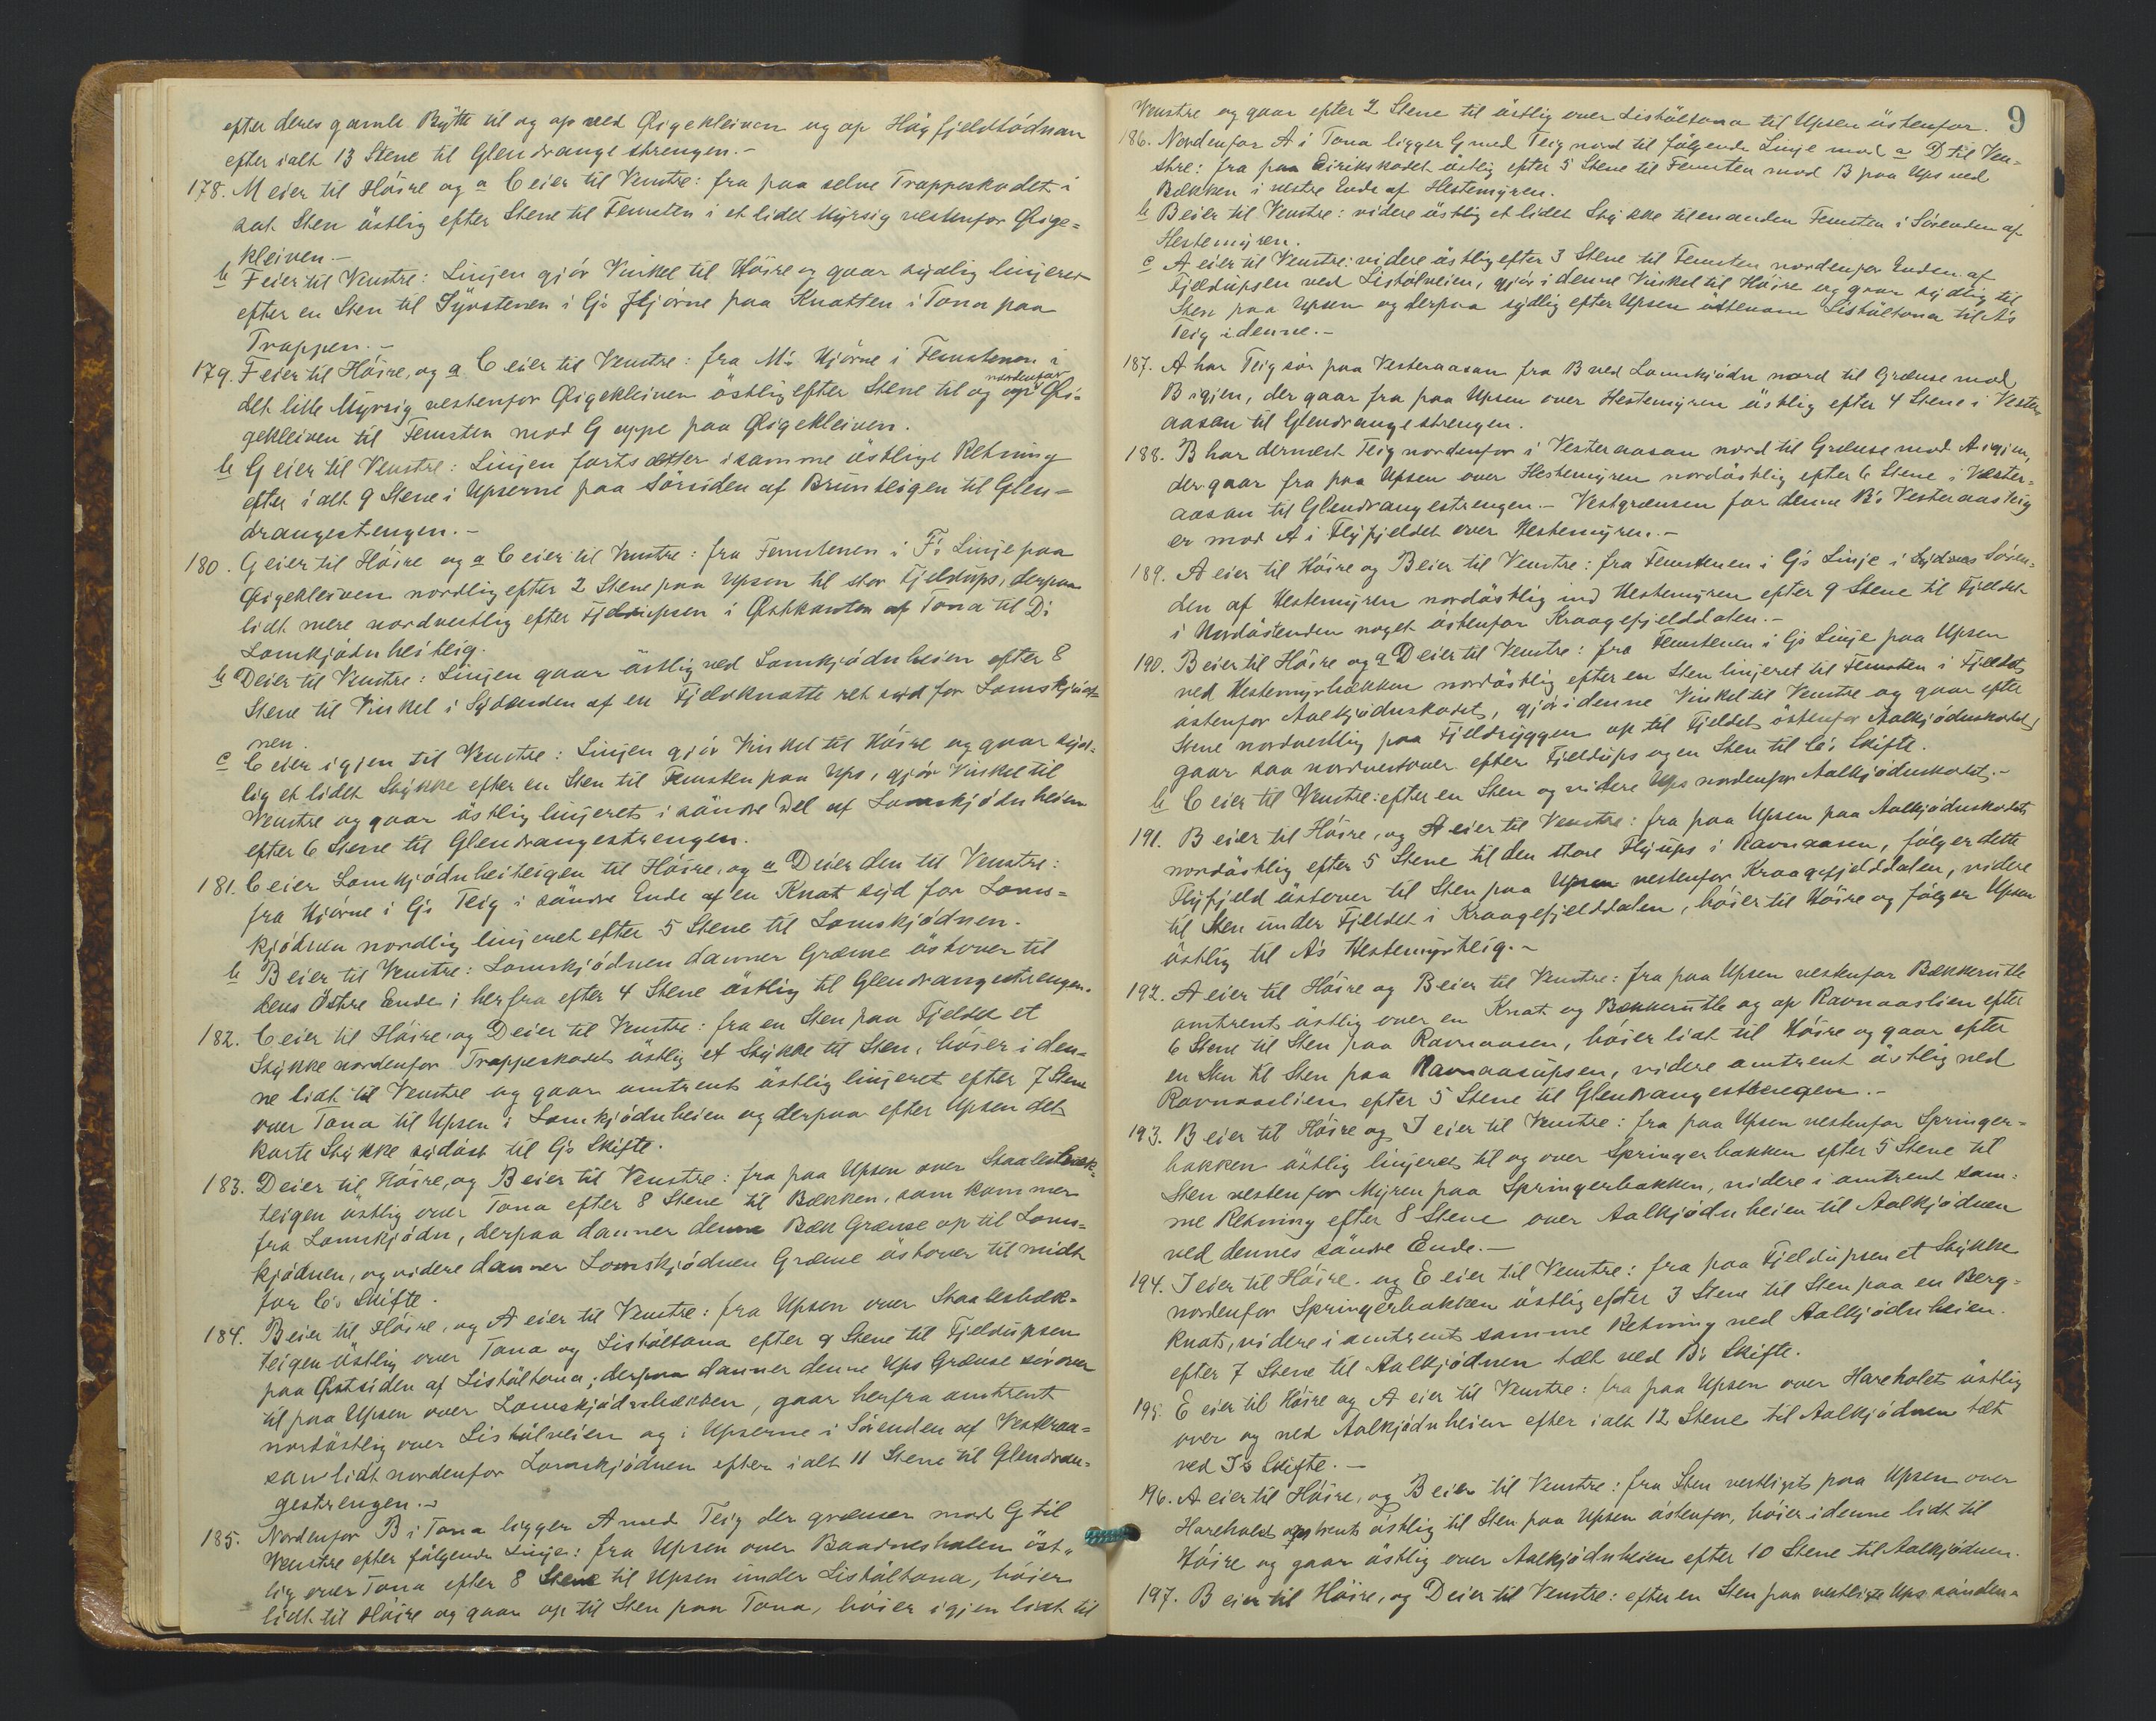 efter deres gamle Bytte til og op ved Qigekleiven og op Høgfjeldtødnan
efter ialt 13 Stene til Glendrange strengen.-
178. M eier til Höire og a C eier til Venstre: fra paa selve Trappeskodet i
sat Sten östlig efter Stene til Femsten i et lidet Myrsig vestenfor Qige=
kleiven.-
b F eier til Venstre: Linjen gjör Vinkel til Höire og gaar sydlig linjeret
efter en Sten til Fyrstenen i G's Hjörne paa Knatten i Tona paa
Trappen.-
179. F eier til Höire, og a C eier til Venstre: fra M's Hjörne i Femstenen i
det lille Myrsig vestenfor Qigekleiven östlig efter Stene til og nordenfor Qi-
gekleiven til Femsten mod G oppe paa Qigekleiven.
b G eier til Venstre: Linjen fortsætter i samme östlige Retning
efter i alt 9 Stene i Upserne paa Sörsiden af Brunteigen til Glen=
drangestrengen.-
180. G eier til Höire og a C eier til Venstre: fra Femstenen i F's Linje paa
Qigekleiven nordlig efter 2 Stene paa Upsen til stor Fjeldups, derpaa
lidt mere nordvestlig efter Fjeldupsen i Østkanten af Tona til D's
Lomkjödnheiteig.
b D eier til Venstre: Linjen gaar östlig ved Lomkjödnheien efter 8
Stene til Vinkel i Sydenden af en Fjeldknatte ret syd for Lomskjöd-
nen.
c C eier igjen til Venstre: Linjen gjör Vinkel til Höire og gaar syd-
lig et lidet Stykke efter en Sten til Femsten paa Ups, gjör Vinkel til
Venstre og gaar östlig linjeret i söndre Del af Lomskjödnheien
efter 6 Stene til Glendrangestrengen.
181. C eier Lomkjödnheiteigen til Höire, og a D eier den til Venstre:
fra Hjörne i G's Teig i söndre Ende af en Knat syd for Loms=
kjödnen nordlig linjeret efter 5 Stene til Lomskjödnen.
b B eier til Venstre: Lomskjödnen danner Grænse östover til
dens Östre Ende; herfra efter 4 Stene östlig til Glendrangestrengen.
182. C eier til Höire, og D eier til Venstre: fra en Sten paa Fjeldet et
Stykke nordenfor Trappeskodet östlig et Stykke til Sten, böier i den-
ne lidt til Venstre og gaar omtrent östlig linjeret efter 7 Stene
over Tona til Upsen i Lomkjödnheien og derpaa efter Upsen det
korte Stykke sydöst til G's Skifte.
183. D eier til Höire, og B eier til Venstre: fra paa Upsen over Skaalesbæk-
teigen östlig over Tona efter 8 Stene til Bækken, som kommer
fra Lomskjödn, derpaa danner denne Bæk Grænse op til Loms=
kjödnen, og videre danner Lomskjödnen Grænse östover til midt
for C's Skifte.
184. B eier til Höire, og A eier til Venstre: fra Upsen over Skaalesbæk-
teigen östlig over Tona og Listöltona efter 9 Stene til Fjeldupsen
paa Østsiden af Listöltona; derpaa danner denne Ups Grænse sörover
til paa Upsen over Lomskjödnbækken, gaar herfra omtrent
nordöstlig over Listölveien og i Upserne i Sörenden af Vesteraa=
san lidt nordenfor Lomskjödnen efter i alt 11 Stene til Glendran-
gestrengen.-
185. Nordenfor B i Tona ligger A med Teig der grænser mod G til
Venstre efter fölgende Linje: fra Upsen over Baadneshalen öst-
lig over Tona efter 8 Stene til Upsen under Listöltona, böier
lidt til Höire og gaar op til Sten paa Tona, böier igjen lidt til
9
Venstre og gaar efter 2 Stene til östlig over Listöltona til Upsen östenfor.
186. Nordenfor A i Tona ligger G med Teig nord til fölgende Linje mod a D til Ven-
stre: fra paa Eirikskodet östlig efter 5 Stene til Femsten mod B paa Ups ved
Bækken i vestre Ende af Hestemyren.
b B eier til Venstre: videre östlig et lidet Stykke til en anden Femsten i Sörenden af
Hestemyren.
c A eier til Venstre: videre östlig efter 3 Stene til Femsten nordenfor Enden af
Fjeldupsen ved Listölveien, gjör i denne Vinkel til Höire og gaar sydlig til
Sten paa Upsen og derpaa sydlig efter Upsen östenom Listöltona til A's
Teig i denne.-
187. A har Teig sör paa Vesteraasan fra B ved Lomskjödn nord til Grænse mod
B igjen, der gaar fra paa Upsen over Hestemyren östlig efter 4 Stene i Vester
aasan til Glendrangestrengen.
188. B har dernæst Teig nordenfor i Vesteraasan nord til Grænse mod A igjen,
der gaar fra paa Upsen over Hestemyren nordöstlig efter 6 Stene i Vester=
aasan til Glendrangestrengen.- Vestgrænsen for denne B's Vesteraasteig
er mod A i Flyfjeldet over Hestemyren.-
189. A eier til Höire og B eier til Venstre: fra Femstenen i G's Linje i Sören-
den af Hestemyren nordöstlig ind Hestemyren efter 9 Stene til Fjeldet
i Nordöstenden noget östenfor Kraagefjelddalen.-
190. B eier til Höire og a D eier til Venstre: fra Femstenen i G's Linje paa Upsen
ved Hestemyrbækken nordöstlig efter en Sten linjeret til Femsten i Fjeldet
östenfor Aalkjödnskodet, gjör i denne Vinkel til Venstre og gaar efter
Stene nordvestlig paa Fjeldryggen op til Fjeldet östenfor Aalkjödnskodet,
gaar saa nordvestover efter Fjeldups og en Sten til C's Skifte.
b C eier til Venstre: efter en Sten og videre Ups nordenfor Aalkjödnskodet.-
191. B eier til Höire, og A eier til Venstre: fra paa Upsen paa Aalkjödnskodet
nordöstlig efter 5 Stene til den store Flyups i Ravnaasen, fölger dette
Flyfjeld östover til Sten paa Upsen vestenfor Kraagefjelddalen, videre
til Sten under Fjeldet i Kraagefjelddalen, böier til Höire og fölger Upsen
östlig til A's Hestemyrteig.-
192. A eier til Höire og B eier til Venstre: fra paa Upsen vestenfor Bækkerutle
omtrent östlig over en Knat og Bækkerutle og op Ravnaaslien efter
6 Stene til Sten paa Ravnaasen, böier lidt til Höire og gaar efter
en Sten til Sten paa Ravnaasupsen, videre omtrent östlig ned
Ravnaaslien efter 5 Stene til Glendrangestrengen.-
193. B eier til Höire og I eier til Venstre: fra paa Upsen vestenfor Springer=
bakken östlig linjeret til og over Springerbakken efter 5 Stene til
Sten vestenfor Myren paa Springerbakken, videre i omtrent sam-
me Retning efter 8 Stene over Aalkjödnheien til Aalkjödnen
ved dennes söndre Ende.-
194. I eier til Höire, og E eier til Venstre: fra paa Fjeldupsen et Stykke
nordenfor Springerbakken östlig efter 3 Stene til Sten paa en Berg=
knat, videre i omtrent samme Retning ned Aalkjödnheien
efter 7 Stene til Aalkjödnen tæt ved B's Skifte.
195. E eier til Höire og A eier til Venstre: fra paa Upsen over Hareholet östlig
over og ned Aalkjödnheien efter i alt 12 Stene til Aalkjödnen tæt
ved I's Skifte.-
196. A eier til Höire, og B eier til Venstre: fra Sten vestligst paa Upsen over
Hareholet omtrent östlig til Sten paa Upsen östenfor, böier i denne lidt til
Höire og gaar östlig over Aalkjödnheien efter 10 Stene til Aalkjödnen.
197. B eier til Höire, og D eier til Venstre: efter en Sten paa vestligste Ups